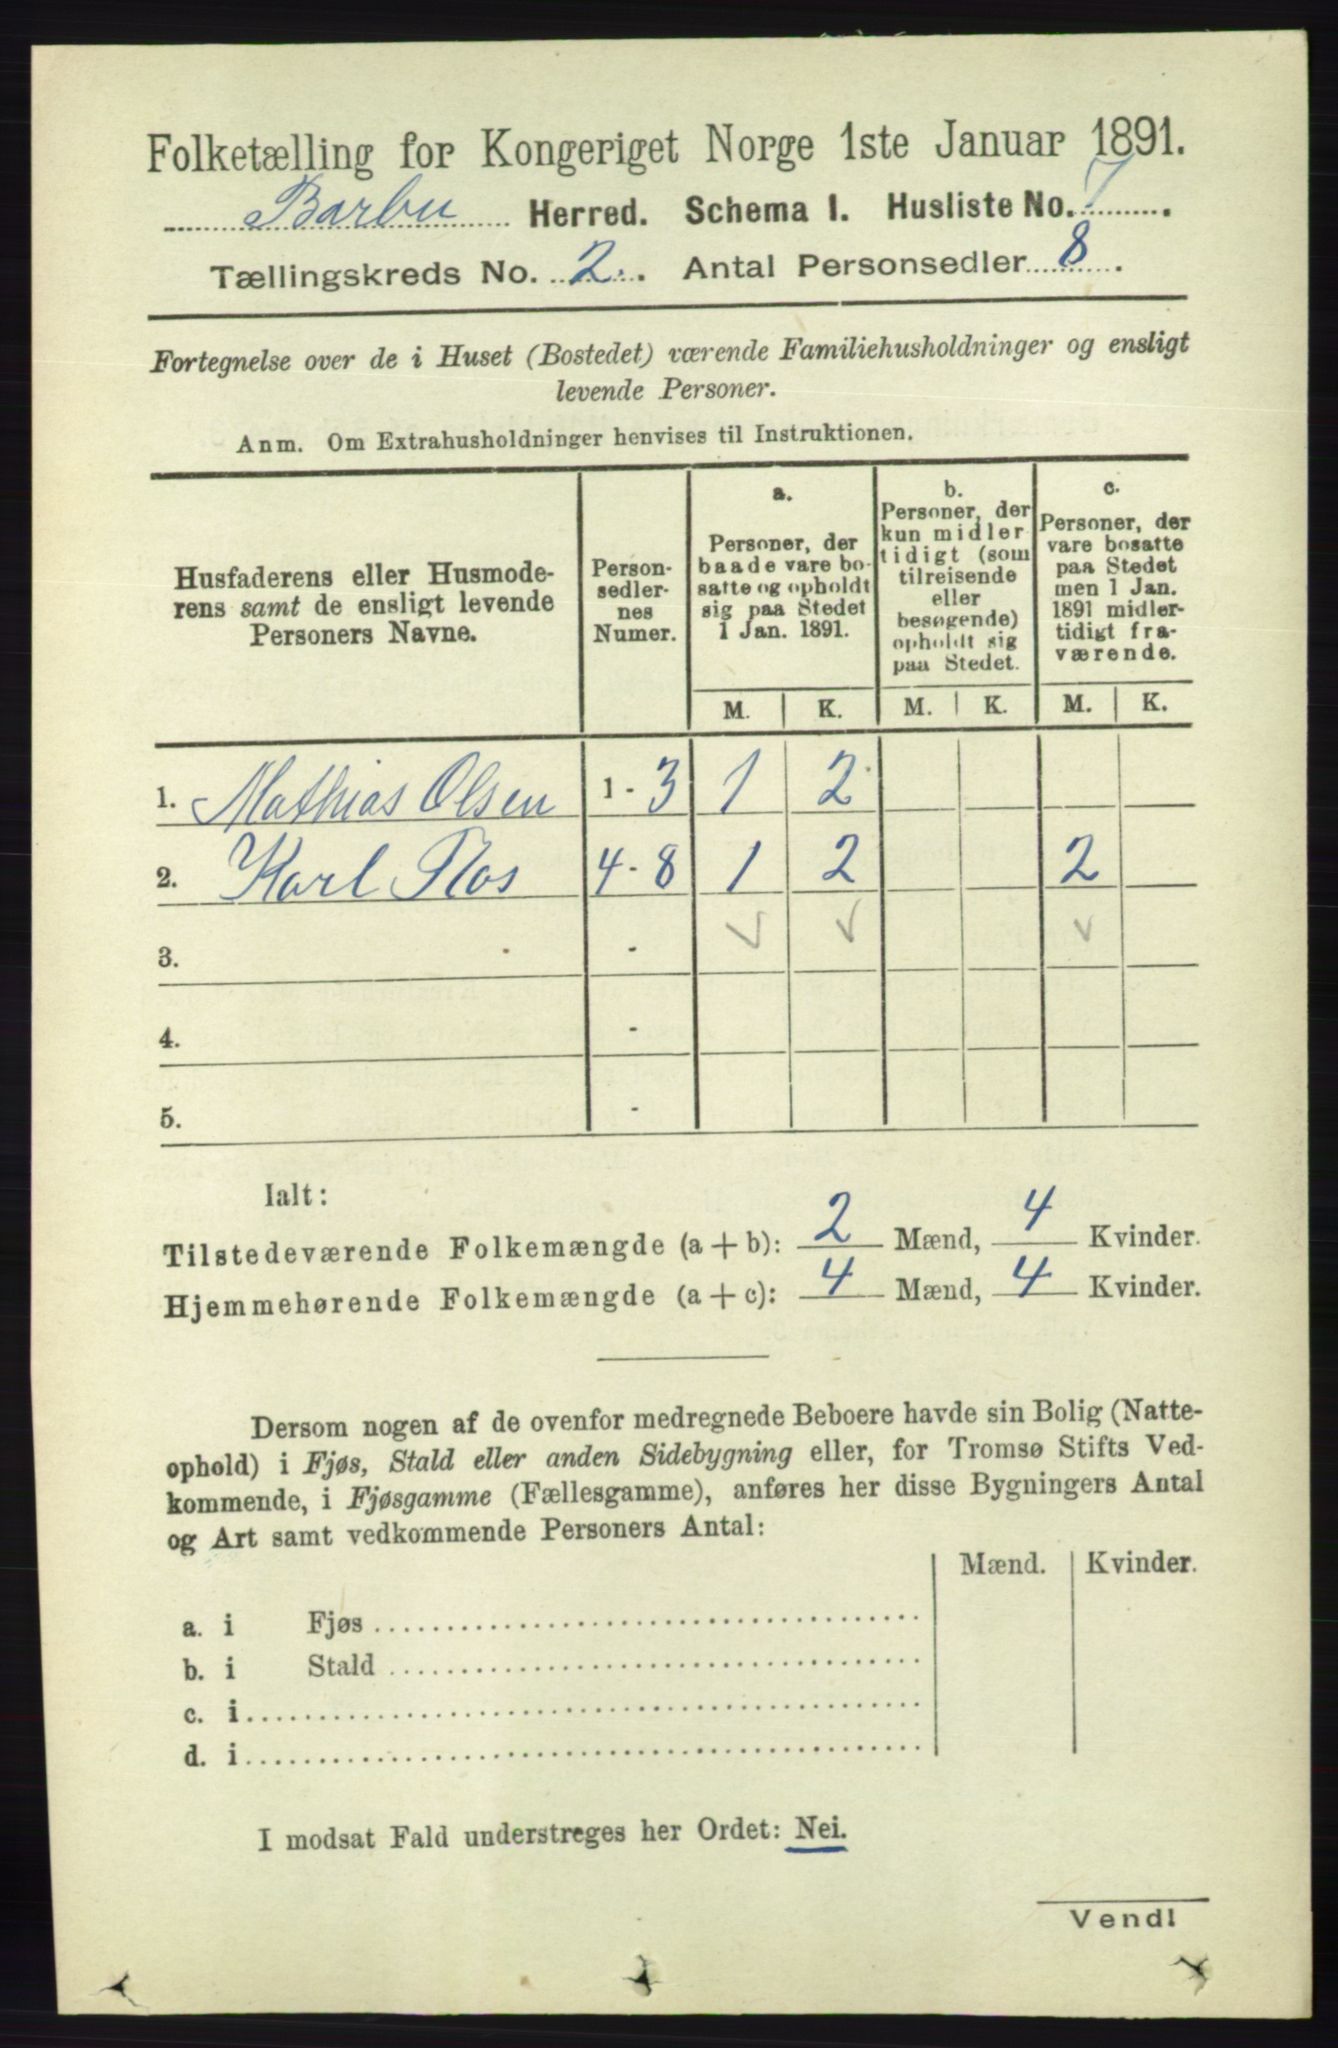 Folketælling for Kongeriget Norge 1ste Januar 1891.
Barbu Herred. Schema I. Husliste No. 7.
Tællingskreds No. 2. Antal Personsedler 8.
Fortegnelse over de i Huset (Bostedet) værende Familiehusholdninger og ensligt
levende Personer.
Anm. Om Extrahusholdninger henvises til Instruktionen.
Husfaderens eller Husmode-
rens samt de ensligt levende
Personers Navne.
Person-
sedler-
nes
Numer.
a.
Personer, der
baade vare bo-
satte og opholdt
sig paa Stedet
1 Jan. 1891.
b.
Personer, der
kun midler
tidigt (som
tilreisende
eller
besøgende)
opholdt sig
paa Stedet.
c.
Personer, der
vare bosatte
paa Stedet
men 1 Jan.
1891 midler-
tidigt fra-
værende.
M. K. M. K. M. K.
1. Mathias Olsen 1 - 3 1 2
2. Karl 4 - 8 1 2 2
3. -
4. -
5. -
Ialt:
Tilstedeværende Folkemængde (a + b): 2 Mænd, 4 Kvinder.
Hjemmehørende Folkemængde (a + c): 4 Mænd, 4 Kvinder.
Dersom nogen af de ovenfor medregnede Beboere havde sin Bolig (Natte-
ophold) i Fjøs, Stald eller anden Sidebygning eller, for Tromsø Stifts Ved-
kommende, i Fjøsgamme (Fællesgamme), anføres her disse Bygningers Antal
og Art samt vedkommende Personers Antal:
Mænd. Kvinder.
a. i Fjøs
b. i Stald
c. i
d. i
I modsat Fald understreges her Ordet: Nei.
Vend!